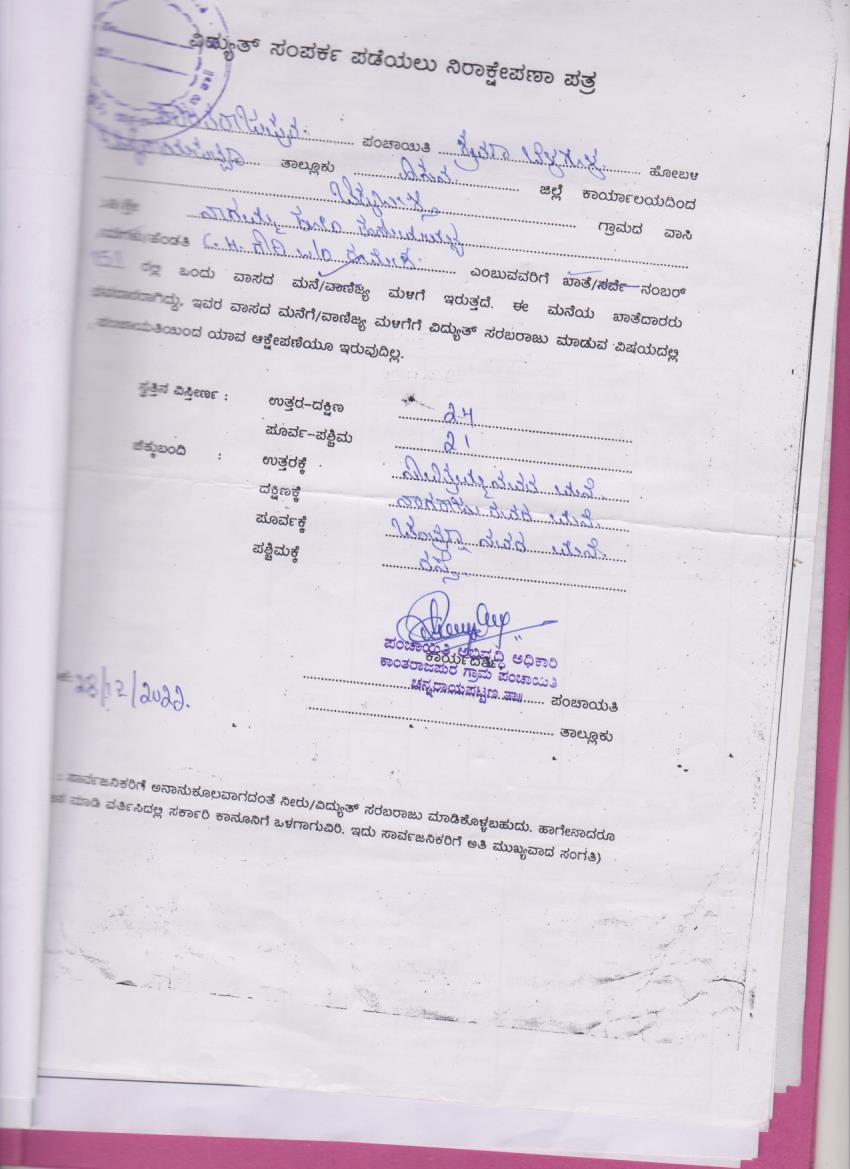 ವಿದ್ಯುತ್ ಸಂಪರ್ಕ ಪಡೆಯಲು ನಿರಾಕ್ಷೇಪಣಾ ಪತ್ರ
ಪಂಚಾಯಿತಿ ಶ್ರವಣ ಬೆಳಗೊಳ ಹೋಬಳಿ
ತಾಲ್ಲೂಕು ಹಾಸನ ಜಿಲ್ಲೆ ಕಾರ್ಯಾಲಯದಿಂದ
ಗ್ರಾಮದ ವಾಸಿ
ನಾಗಯ್ಯ
ಹೆಂಡತಿ C. H. ಗೌರಿ W/O ರಮೇಶ ಎಂಬುವವರಿಗೆ ಖಾತೆ/ಸರ್ವೆ ನಂಬರ್
ರಲ್ಲಿ ಒಂದು ವಾಸದ ಮನೆ/ವಾಣಿಜ್ಯ ಮಳಿಗೆ ಇರುತ್ತದೆ. ಈ ಮನೆಯ ಖಾತೆದಾರರು
ಇವರ ವಾಸದ ಮನೆಗೆ/ವಾಣಿಜ್ಯ ಮಳಿಗೆಗೆ ವಿದ್ಯುತ್ ಸರಬರಾಜು ಮಾಡುವ ವಿಷಯದಲ್ಲಿ
ಪಂಚಾಯತಿಯಿಂದ ಯಾವ ಆಕ್ಷೇಪಣೆಯೂ ಇರುವುದಿಲ್ಲ.
ಸ್ವತ್ತಿನ ವಿಸ್ತೀರ್ಣ : ಉತ್ತರ-ದಕ್ಷಿಣ 24
ಪೂರ್ವ-ಪಶ್ಚಿಮ 21
ಚೆಕ್ಕುಬಂದಿ : ಉತ್ತರಕ್ಕೆ ರವರ ಮನೆ
ದಕ್ಷಿಣಕ್ಕೆ ನಾಗರಾಜು ರವರ ಮನೆ
ಪೂರ್ವಕ್ಕೆ ರವರ ಮನೆ
ಪಶ್ಚಿಮಕ್ಕೆ ರಸ್ತೆ
ಕಾರ್ಯದರ್ಶಿ
ಪಂಚಾಯಿತಿ ಅಭಿವೃದ್ಧಿ ಅಧಿಕಾರಿ
ಕಾಂತರಾಜಪುರ ಗ್ರಾಮ ಪಂಚಾಯಿತಿ
ಚನ್ನರಾಯಪಟ್ಟಣ ತಾ॥
28/12/2022. ಪಂಚಾಯತಿ
ತಾಲ್ಲೂಕು
: ಸಾರ್ವಜನಿಕರಿಗೆ ಅನಾನುಕೂಲವಾಗದಂತೆ ನೀರು/ವಿದ್ಯುತ್ ಸರಬರಾಜು ಮಾಡಿಕೊಳ್ಳಬಹುದು. ಹಾಗೇನಾದರೂ
ಮಾಡಿ ವರ್ತಿಸಿದಲ್ಲಿ ಸರ್ಕಾರಿ ಕಾನೂನಿಗೆ ಒಳಗಾಗುವಿರಿ. ಇದು ಸಾರ್ವಜನಿಕರಿಗೆ ಅತಿ ಮುಖ್ಯವಾದ ಸಂಗತಿ)